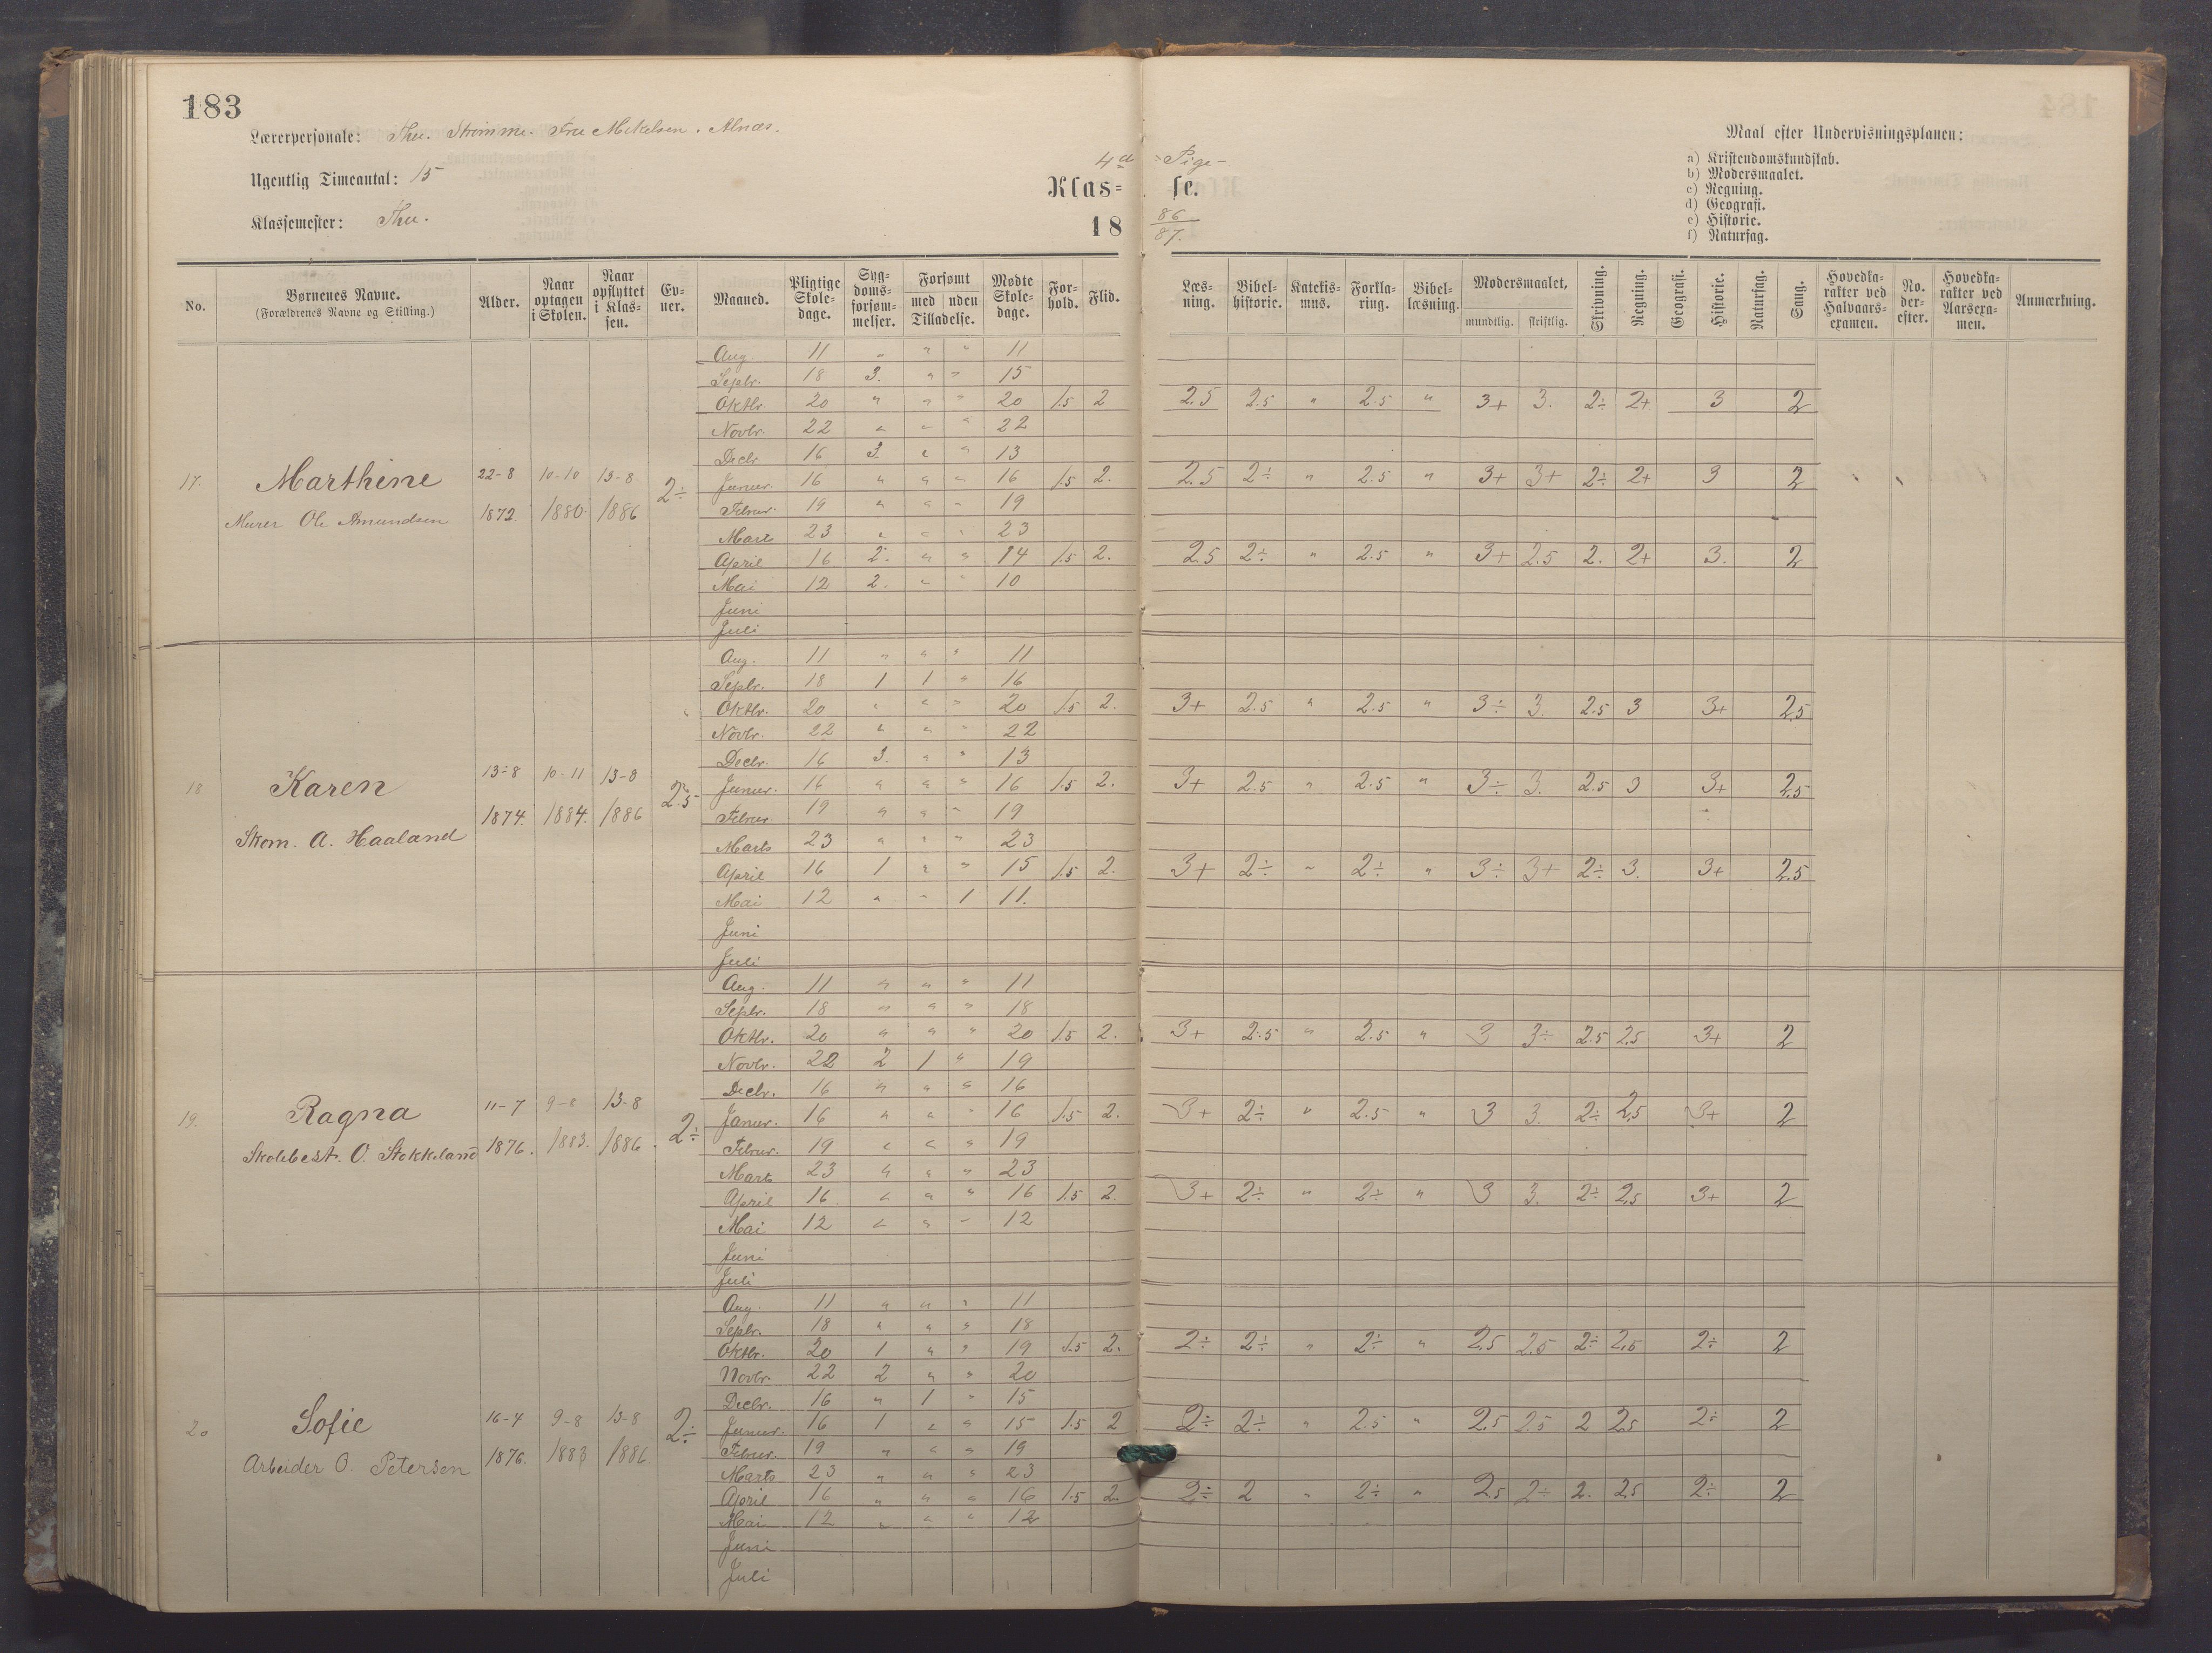 183
Lærerpersonale: Thu. Strømme. Fru Mikelsen. Alnæs.
Ugentlig Timeantal: 15
Klassemester: Thu.
4de Pige-
Klas= se.
18 86/87.
Maal efter Undervisningsplanen:
a) Kristendomskundskab.
b) Modersmaalet.
c) Regning.
d) Geografi.
e) Historie.
f) Naturfag.
No. | Børnenes Navne. (Forældrenes Navne og Stilling.) | Alder. | Naar optagen i Skolen. | Naar opflyttet i Klas-sen. | Ev-ner. | Maaned. | Pligtige Skole-dage. | Syg-doms-forsøm-melser. | Forsømt med uden Tilladelse. | Mødte Skole-dage. | For-hold. | Flid. | Læs-ning. | Bibel-historie. | Katekis-mus. | Forkla-ring. | Bibel-læsning. | Modersmaalet, mundtlig. skriftlig. | Skrivning. | Regning. | Geografi. | Historie. | Naturfag. | Sang. | Hovedka-rakter ved Halvaars-examen. | No. der-efter. | Hovedka-rakter ved Aarsexa-men. | Anmærkning.
17. Marthine 22-8 1872. 10-10 1880 13-8 1886 2÷
Murer Ole Amundsen
Aug. 11 " " " 11
Septr. 18 3. " " 15
Oktbr. 20 " " " 20 1.5 2 2.5 2.5 " 2.5 " 3+ 3. 2÷ 2+ 3 2
Novbr. 22 " " " 22
Decbr. 16 3. " " 13
Januar. 16 " " " 16 1.5 2. 2.5 2÷ " 2.5 " 3+ 3+ 2÷ 2+ 3 2
Februar. 19 " " " 19
Marts 23 " " " 23
April 16 2. " " 14 1.5 2. 2.5 2÷ " 2.5 " 3+ 2.5 2. 2+ 3. 2
Mai 12 2. " " 10
Juni
Juli
18 Karen 13-8 1874. 10-11 1884. 13-8 1886 2.5
Skom. A. Haaland
Aug. 11 " " " 11
Septr. 18 1 1 " 16
Oktbr. 20 " " " 20 1.5 2. 3+ 2.5 " 2.5 " 3÷ 3. 2.5 3 3+ 2.5
Novbr. 22 " " " 22
Decbr. 16 3. " " 13
Januar. 16 " " " 16 1.5 2. 3+ 2.5 " 2.5 " 3÷ 3. 2.5 3 3+ 2.5
Februar 19 " " " 19
Marts 23 " " " 23
April 16 1 " " 15 1.5 2. 3+ 2÷ " 2÷ " 3÷ 3+ 2÷ 3. 3+ 2.5
Mai 12 " " 1 11.
Juni
Juli
19. Ragna 11-7 1876. 9-8 1883. 13-8 1886. 2÷
Skolebest. O. Stokkeland
Aug. 11 " " " 11
Septr. 18 " " " 18
Oktbr. 20 " " " 20 1.5 2. 3+ 2.5 " 2.5 " 3 3÷ 2.5 2.5 3+ 2
Novbr. 22 2 1 " 19
Decbr. 16 " " " 16
Januar. 16 " " " 16 1.5 2. 3+ 2÷ " 2.5 " 3 3. 2÷ 2.5 3+ 2
Februar. 19 " " " 19
Marts 23 " " " 23
April 16 " " " 16 1.5 2. 3+ 2÷ " 2÷ " 3 3. 2÷ 2.5 3+ 2
Mai 12 " " " 12
Juni
Juli
20 Sofie 16-4 1876. 9-8 1883 13-8 1886 2÷
Arbeider O. Petersen
Aug. 11 " " " 11
Septr. 18 " " " 18
Oktbr. 20 1 " " 19 1.5 2. 2÷ 2÷ " 2÷ " 2.5 2.5 2÷ 2.5 2÷ 2
Novbr. 22 2 " " 20
Decbr. 16 " 1 " 15
Januar. 16 1 " " 15 1.5 2 2÷ 2÷ " 2.5 " 2.5 2.5 2 2.5 2÷ 2
Februar. 19 " " " 19
Marts 23 " " " 23
April 16 " " " 16 1.5 2. 2÷ 2 " 2÷ " 2.5 2÷ 2. 2.5 2÷ 2
Mai 12 " " " 12
Juni
Juli